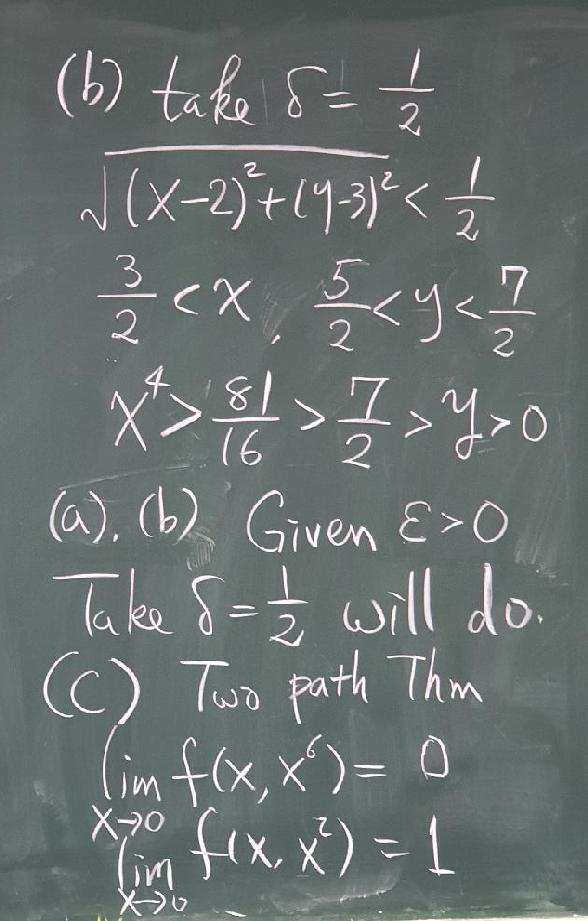 (b) take δ = 1/2
√((x-2)²+(y-3)²) < 1/2
3/2 < x, 5/2 < y < 7/2
x⁴ > 81/16 > 7/2 > y > 0
(a), (b) Given ε > 0
Take δ = 1/2 will do.
(c) Two path Thm
lim x→0 f(x, x⁶) = 0
lim x→0 f(x, x²) = 1